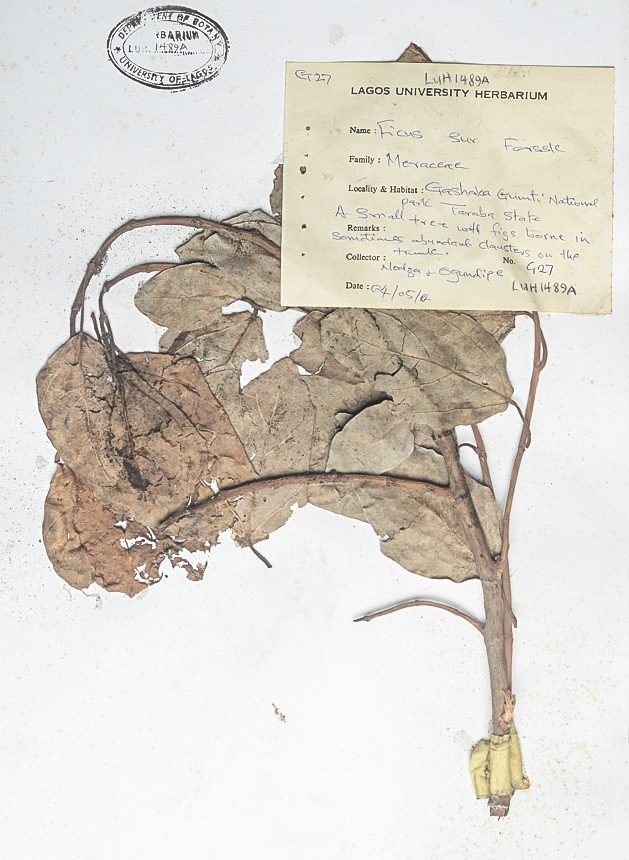 DEPARTMENT OF BOTANY
HERBARIUM
LUH 1489A
UNIVERSITY OF LAGOS
G27
LUH1489A
LAGOS UNIVERSITY HERBARIUM
Name : Ficus sur Forssk
Family : Moraceae
Locality & Habitat : Gashaka Gumti National
park Taraba State
A small tree with figs borne in
Remarks :
sometimes abundant clusters on the
trunk.
Collector : Nodza & Ogundipe No. G27
LUH1489A
Date : 04/05/12